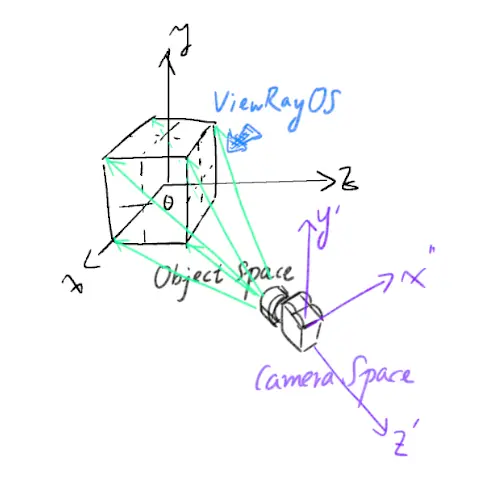 y
ViewRayOS
z
θ
y'
x
Object Space
x"
Camera Space
z'